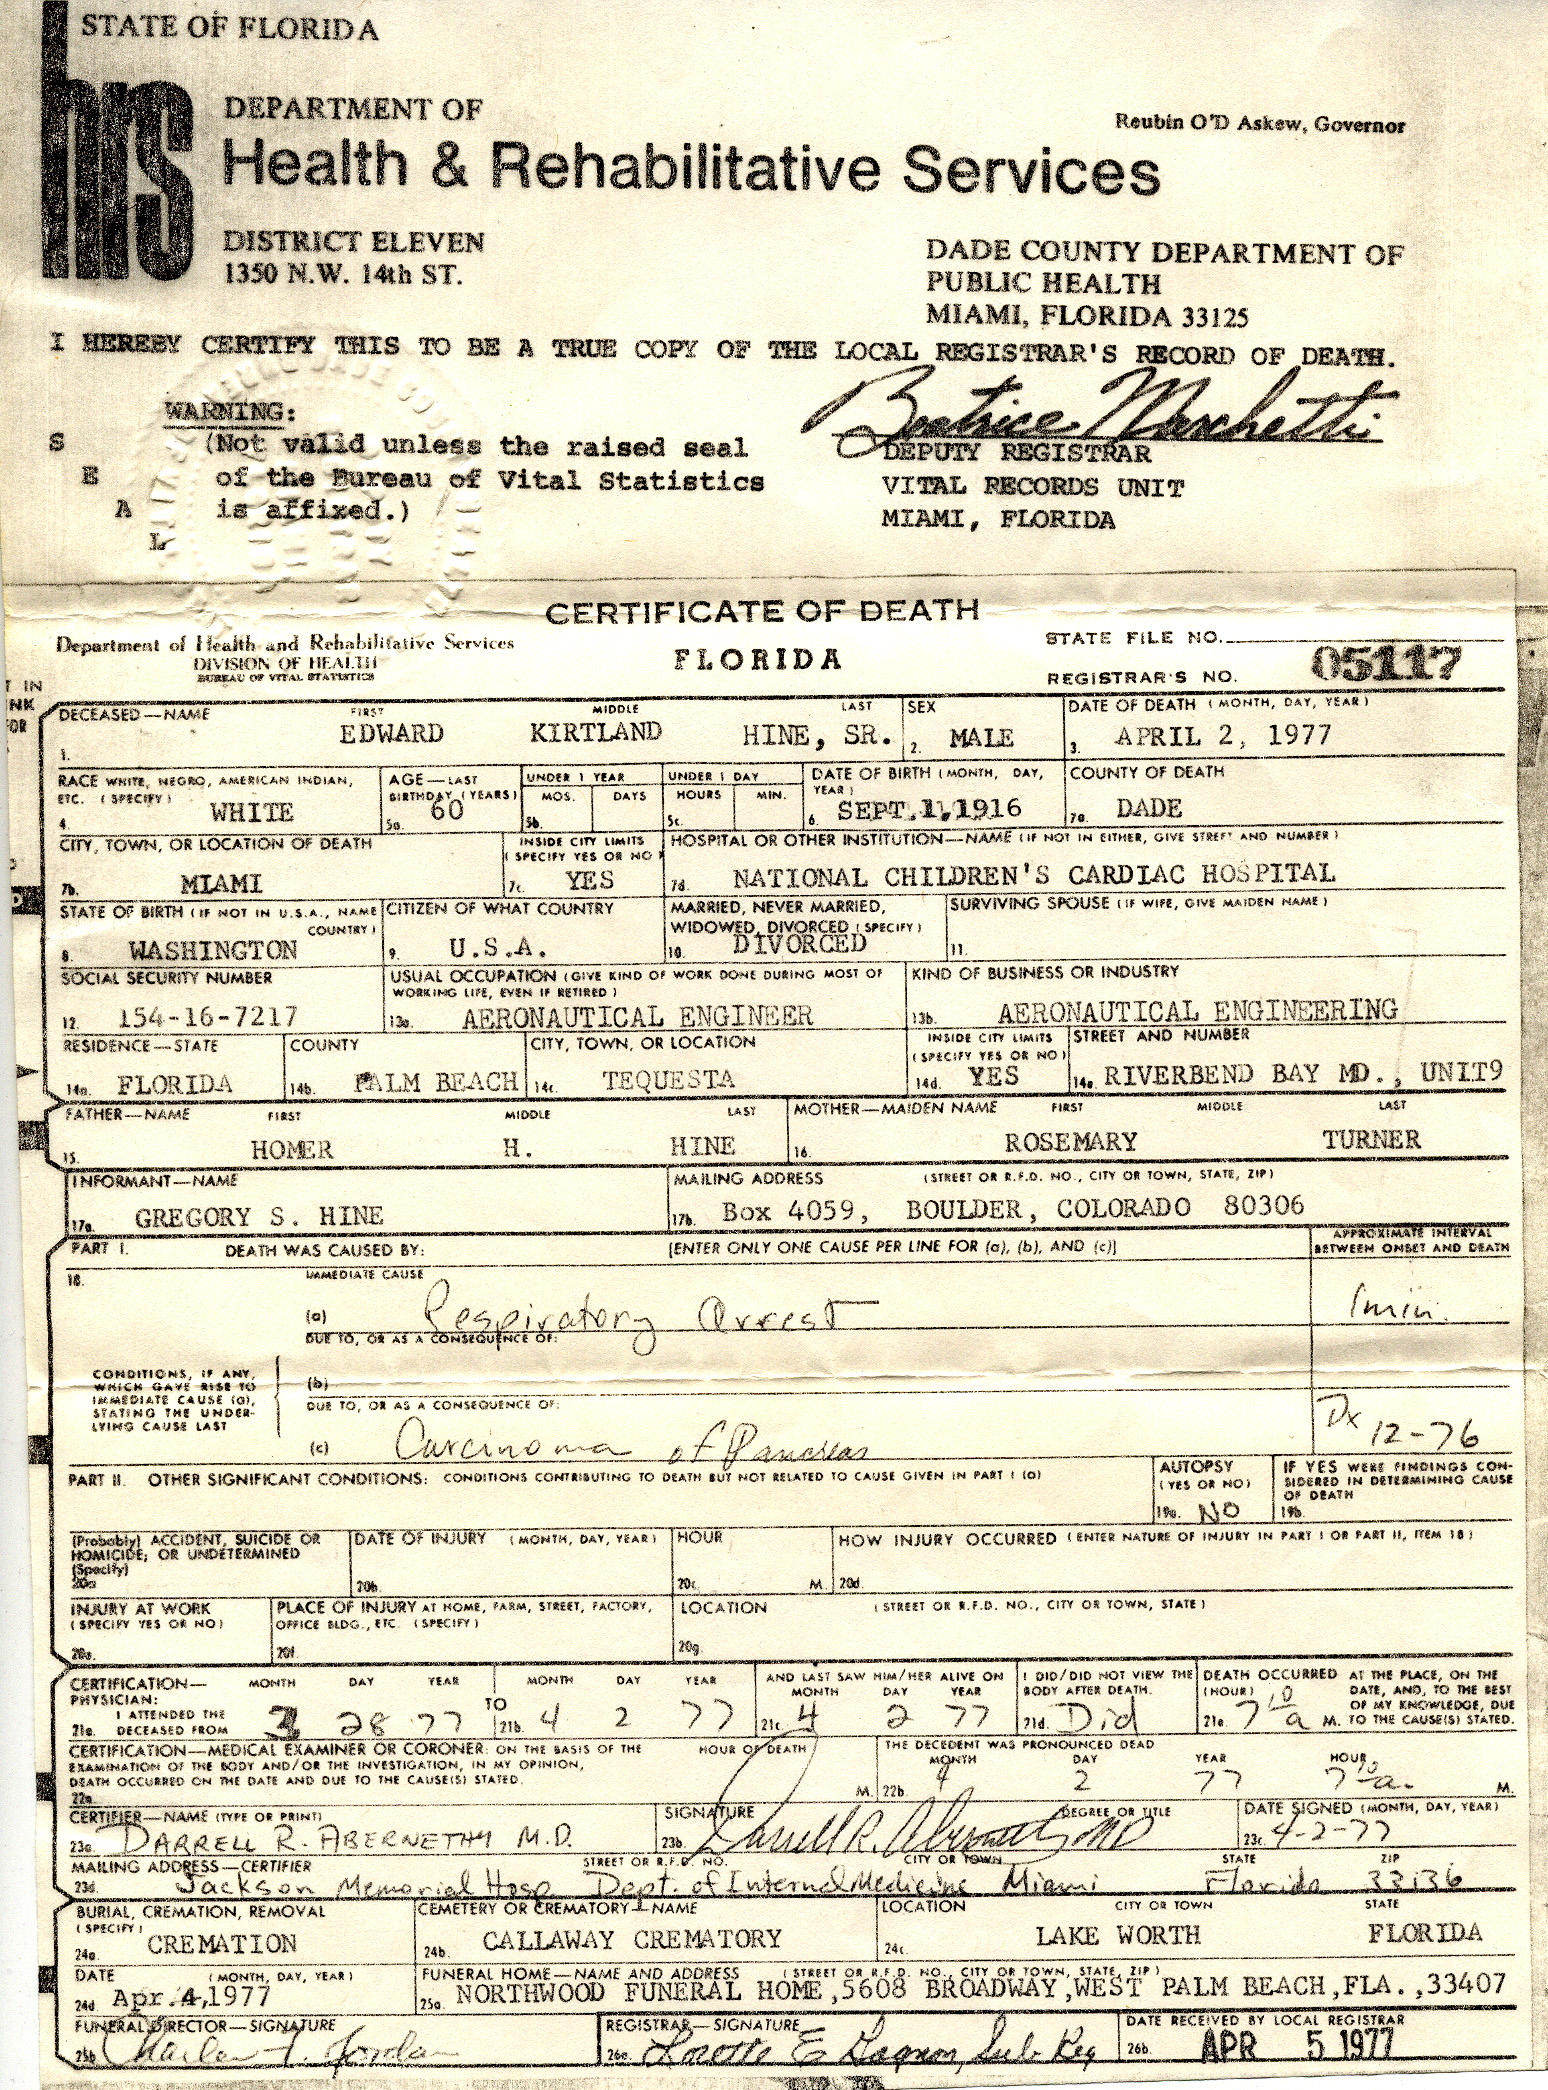 STATE OF FLORIDA
hrs
DEPARTMENT OF
Reubin O'D Askew, Governor
Health & Rehabilitative Services
DISTRICT ELEVEN
1350 N.W. 14th ST.
DADE COUNTY DEPARTMENT OF
PUBLIC HEALTH
MIAMI, FLORIDA 33125
I HEREBY CERTIFY THIS TO BE A TRUE COPY OF THE LOCAL REGISTRAR'S RECORD OF DEATH.
Beatrice Marchetti
WARNING:
S E A L
(Not valid unless the raised seal
of the Bureau of Vital Statistics
is affixed.)
DEPUTY REGISTRAR
VITAL RECORDS UNIT
MIAMI, FLORIDA
CERTIFICATE OF DEATH
FLORIDA
Department of Health and Rehabilitative Services
DIVISION OF HEALTH
BUREAU OF VITAL STATISTICS
STATE FILE NO.
REGISTRAR'S NO. 05117
T IN
NK
FOR
DECEASED—NAME FIRST MIDDLE LAST SEX DATE OF DEATH (MONTH, DAY, YEAR)
1. EDWARD KIRTLAND HINE, SR. 2. MALE 3. APRIL 2, 1977
RACE WHITE, NEGRO, AMERICAN INDIAN, ETC. (SPECIFY) AGE—LAST BIRTHDAY (YEARS) UNDER 1 YEAR MOS. DAYS UNDER 1 DAY HOURS MIN. DATE OF BIRTH (MONTH, DAY, YEAR) COUNTY OF DEATH
4. WHITE 5a. 60 5b. 5c. 6. SEPT.11,1916 7a. DADE
CITY, TOWN, OR LOCATION OF DEATH INSIDE CITY LIMITS (SPECIFY YES OR NO) HOSPITAL OR OTHER INSTITUTION—NAME (IF NOT IN EITHER, GIVE STREET AND NUMBER)
7b. MIAMI 7c. YES 7d. NATIONAL CHILDREN'S CARDIAC HOSPITAL
STATE OF BIRTH (IF NOT IN U.S.A., NAME COUNTRY) CITIZEN OF WHAT COUNTRY MARRIED, NEVER MARRIED, WIDOWED, DIVORCED (SPECIFY) SURVIVING SPOUSE (IF WIFE, GIVE MAIDEN NAME)
8. WASHINGTON 9. U.S.A. 10. DIVORCED 11.
SOCIAL SECURITY NUMBER USUAL OCCUPATION (GIVE KIND OF WORK DONE DURING MOST OF WORKING LIFE, EVEN IF RETIRED) KIND OF BUSINESS OR INDUSTRY
12. 154-16-7217 13a. AERONAUTICAL ENGINEER 13b. AERONAUTICAL ENGINEERING
RESIDENCE—STATE COUNTY CITY, TOWN, OR LOCATION INSIDE CITY LIMITS (SPECIFY YES OR NO) STREET AND NUMBER
14a. FLORIDA 14b. PALM BEACH 14c. TEQUESTA 14d. YES 14e. RIVERBEND BAY MD., UNIT9
FATHER—NAME FIRST MIDDLE LAST MOTHER—MAIDEN NAME FIRST MIDDLE LAST
15. HOMER H. HINE 16. ROSEMARY TURNER
INFORMANT—NAME MAILING ADDRESS (STREET OR R.F.D. NO., CITY OR TOWN, STATE, ZIP)
17a. GREGORY S. HINE 17b. Box 4059, BOULDER, COLORADO 80306
PART I. DEATH WAS CAUSED BY: [ENTER ONLY ONE CAUSE PER LINE FOR (a), (b), AND (c)] APPROXIMATE INTERVAL BETWEEN ONSET AND DEATH
18. IMMEDIATE CAUSE
(a) Respiratory Arrest 1 min.
DUE TO, OR AS A CONSEQUENCE OF:
CONDITIONS, IF ANY, WHICH GAVE RISE TO IMMEDIATE CAUSE (a), STATING THE UNDERLYING CAUSE LAST
(b)
DUE TO, OR AS A CONSEQUENCE OF:
(c) Carcinoma of Pancreas Dx 12-76
PART II. OTHER SIGNIFICANT CONDITIONS: CONDITIONS CONTRIBUTING TO DEATH BUT NOT RELATED TO CAUSE GIVEN IN PART I (a) AUTOPSY (YES OR NO) IF YES WERE FINDINGS CONSIDERED IN DETERMINING CAUSE OF DEATH
19a. NO 19b.
(Probably) ACCIDENT, SUICIDE OR HOMICIDE, OR UNDETERMINED (Specify) DATE OF INJURY (MONTH, DAY, YEAR) HOUR HOW INJURY OCCURRED (ENTER NATURE OF INJURY IN PART I OR PART II, ITEM 18)
20a 20b. 20c. M. 20d.
INJURY AT WORK (SPECIFY YES OR NO) PLACE OF INJURY AT HOME, FARM, STREET, FACTORY, OFFICE BLDG., ETC. (SPECIFY) LOCATION (STREET OR R.F.D. NO., CITY OR TOWN, STATE)
20e. 20f. 20g.
CERTIFICATION—PHYSICIAN: MONTH DAY YEAR MONTH DAY YEAR AND LAST SAW HIM/HER ALIVE ON MONTH DAY YEAR I DID/DID NOT VIEW THE BODY AFTER DEATH. DEATH OCCURRED (HOUR) AT THE PLACE, ON THE DATE, AND, TO THE BEST OF MY KNOWLEDGE, DUE TO THE CAUSE(S) STATED.
21a. I ATTENDED THE DECEASED FROM 3 28 77 TO 21b. 4 2 77 21c. 4 2 77 21d. Did 21e. 7 10 a M.
CERTIFICATION—MEDICAL EXAMINER OR CORONER: ON THE BASIS OF THE EXAMINATION OF THE BODY AND/OR THE INVESTIGATION, IN MY OPINION, DEATH OCCURRED ON THE DATE AND DUE TO THE CAUSE(S) STATED. HOUR OF DEATH THE DECEDENT WAS PRONOUNCED DEAD MONTH DAY YEAR HOUR
22a. M. 22b. 4 2 77 7 10 a. M.
CERTIFIER—NAME (TYPE OR PRINT) SIGNATURE DEGREE OR TITLE DATE SIGNED (MONTH, DAY, YEAR)
23a. DARRELL R. ABERNETHY M.D. 23b. Darrell R. Abernethy MD 23c. 4-2-77
MAILING ADDRESS—CERTIFIER STREET OR R.F.D. NO. CITY OR TOWN STATE ZIP
23d. Jackson Memorial Hosp Dept. of Internal Medicine Miami Florida 33136
BURIAL, CREMATION, REMOVAL (SPECIFY) CEMETERY OR CREMATORY—NAME LOCATION CITY OR TOWN STATE
24a. CREMATION 24b. CALLAWAY CREMATORY 24c. LAKE WORTH FLORIDA
DATE (MONTH, DAY, YEAR) FUNERAL HOME—NAME AND ADDRESS (STREET OR R.F.D. NO., CITY OR TOWN, STATE, ZIP)
24d. Apr.4,1977 25a. NORTHWOOD FUNERAL HOME,5608 BROADWAY,WEST PALM BEACH,FLA.,33407
FUNERAL DIRECTOR—SIGNATURE REGISTRAR—SIGNATURE DATE RECEIVED BY LOCAL REGISTRAR
25b. Jordan 26a. E Gagnon, Sub. Reg 26b. APR 5 1977